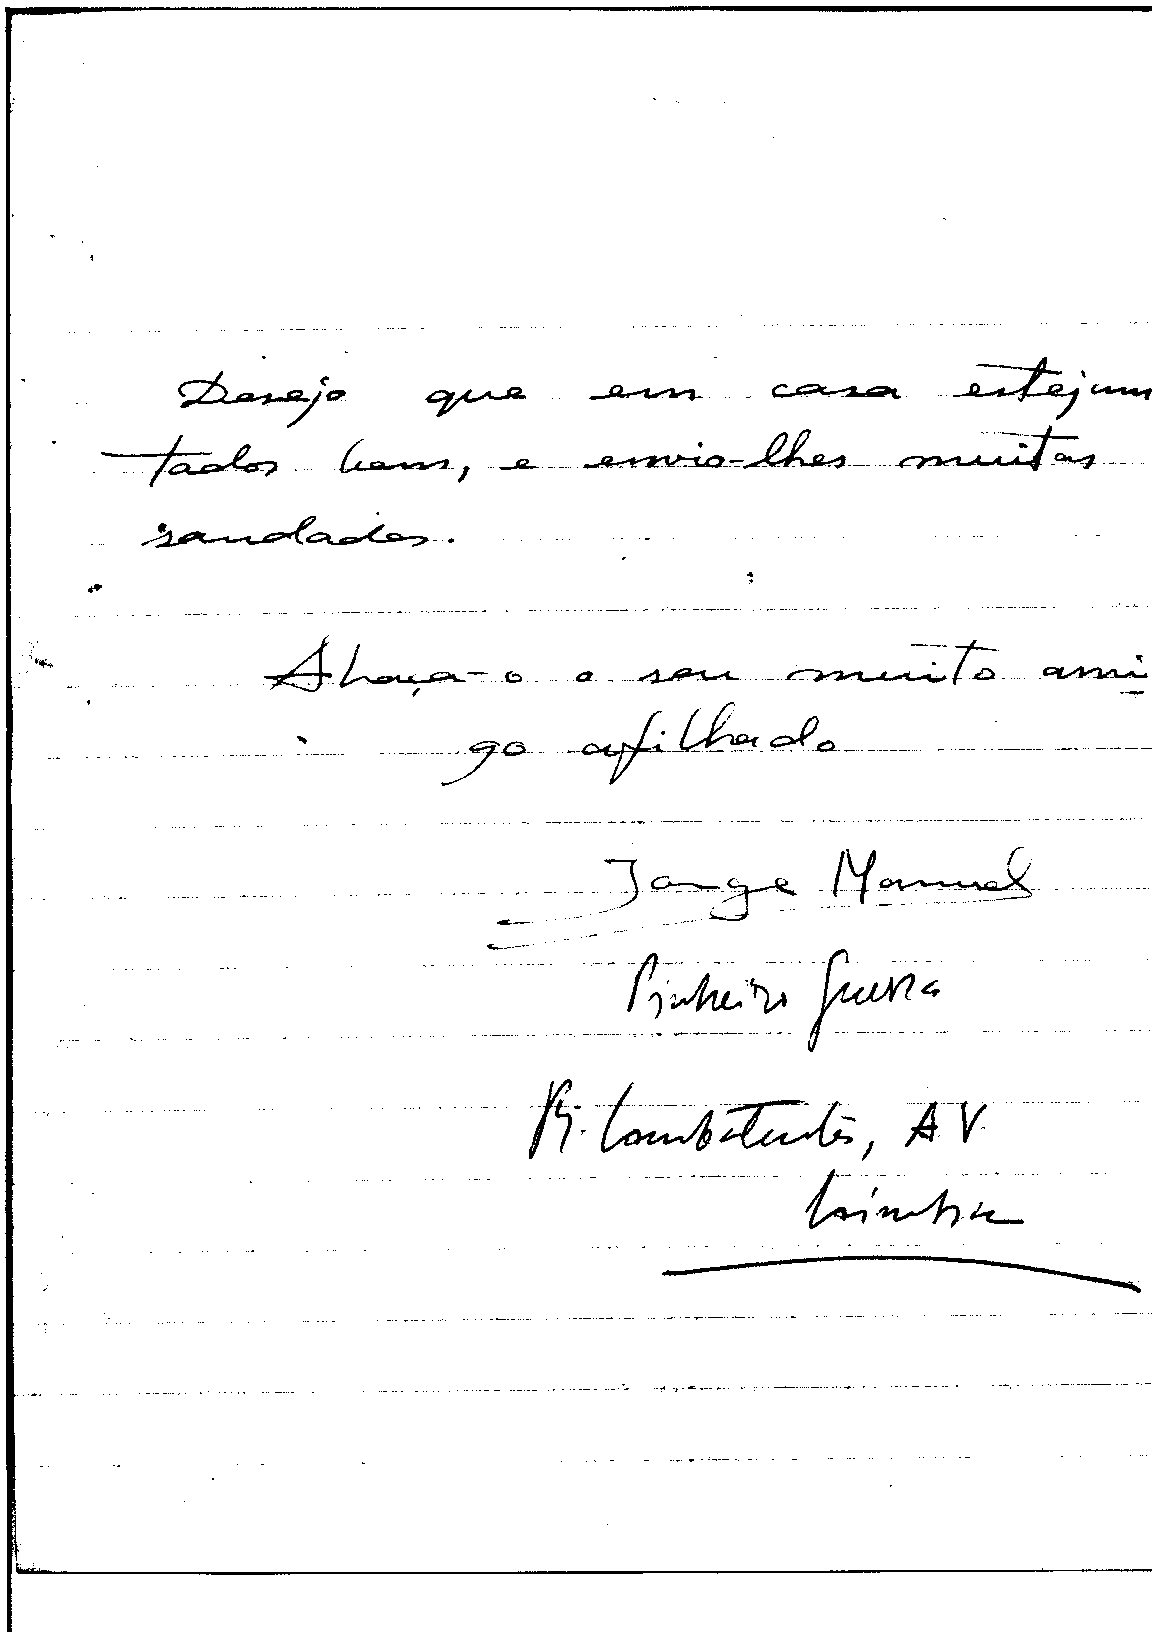 Desejo que em casa estejam
todos bem, e envio-lhes muitas
saudades.
Abraça-o o seu muito ami
go afilhado
Jorge Manuel
Pinheiro Guerra
R. Combatentes, A V.
Coimbra